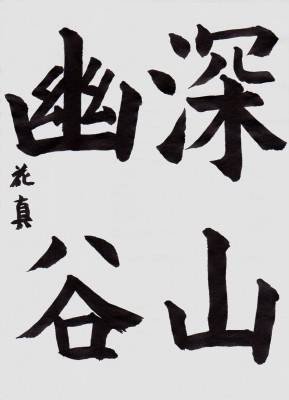 深山
幽谷
花真